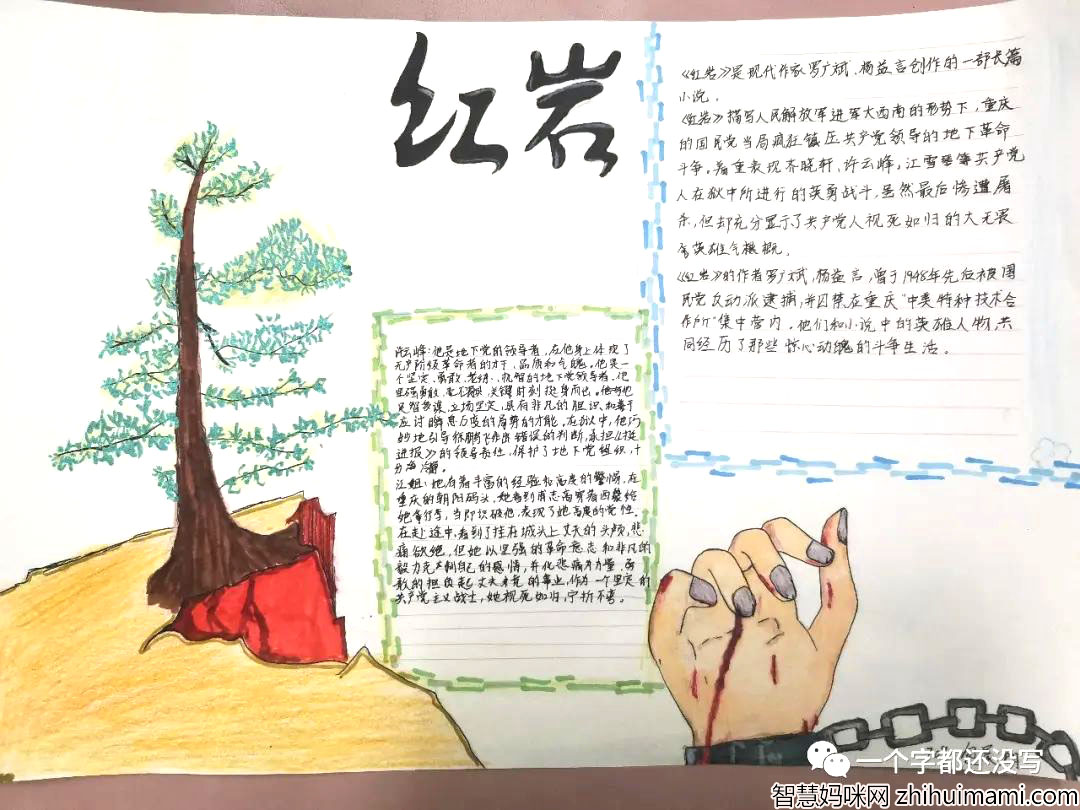 红岩
《红岩》是现代作家罗广斌、杨益言创作的一部长篇
小说。
《红岩》描写人民解放军进军大西南的形势下，重庆
的国民党当局疯狂镇压共产党领导的地下革命
斗争。着重表现齐晓轩、许云峰，江雪琴等共产党
人在狱中所进行的英勇战斗，虽然最后惨遭屠
杀，但却充分显示了共产党人视死如归的大无畏
英雄气概。
《红岩》的作者罗广斌，杨益言，曾于1948年先后被国
民党反动派逮捕，并囚禁在重庆"中美特种技术合
作所"集中营内。他们和小说中的英雄人物，共
同经历了那些惊心动魄的斗争生活。
许云峰：他是地下党的领导者，在他身上体现了
无产阶级革命者的才干、品质和气魄。他是一
个坚定、勇敢、老练、机智的地下党领导者。他
坚强勇敢，关键时刻挺身而出。他
足智多谋，立场坚定，具有非凡的胆识和善于
应付瞬息万变的局势的才能。在狱中，他巧
妙地引导徐鹏飞作出错误的判断，承担《挺
进报》的领导责任，保护了地下党组织，十
分冷静。
江姐：她有着丰富的经验和高度的警惕，在
重庆的朝阳码头，她看到甫志高穿着西装给
她拿行李，当即识破他，表现了她高度的党性。
在赴途中，看到了挂在城头上丈夫的头颅，悲
痛欲绝，但她以坚强的革命意志和非凡的
毅力克制自己的感情，并化悲痛为力量，勇
敢的担负起丈夫未竟的事业，作为一个坚定的
共产党主义战士，她视死如归，宁折不弯。
一个字都还没写
智慧妈咪网 zhihuimami.com